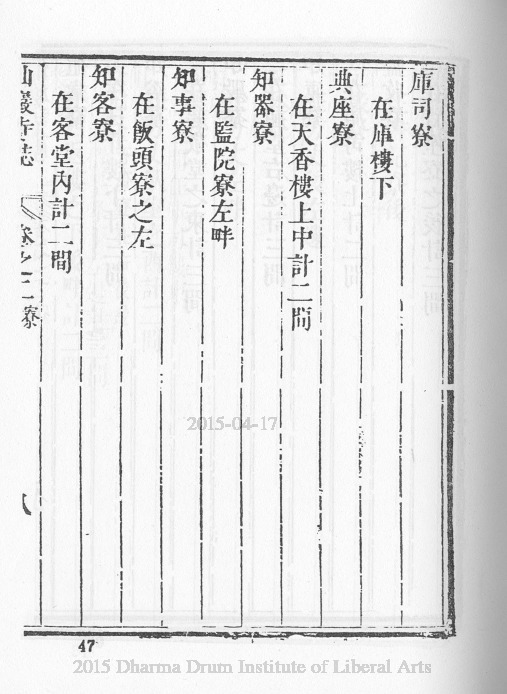 庫司寮
在庫樓下
典座寮
在天香樓上中計二間
知器寮
在監院寮左畔
知事寮
在飯頭寮之左
知客寮
在客堂內計二間
山巖寺志 卷之二 寮
八
47
2015-04-17
2015 Dharma Drum Institute of Liberal Arts